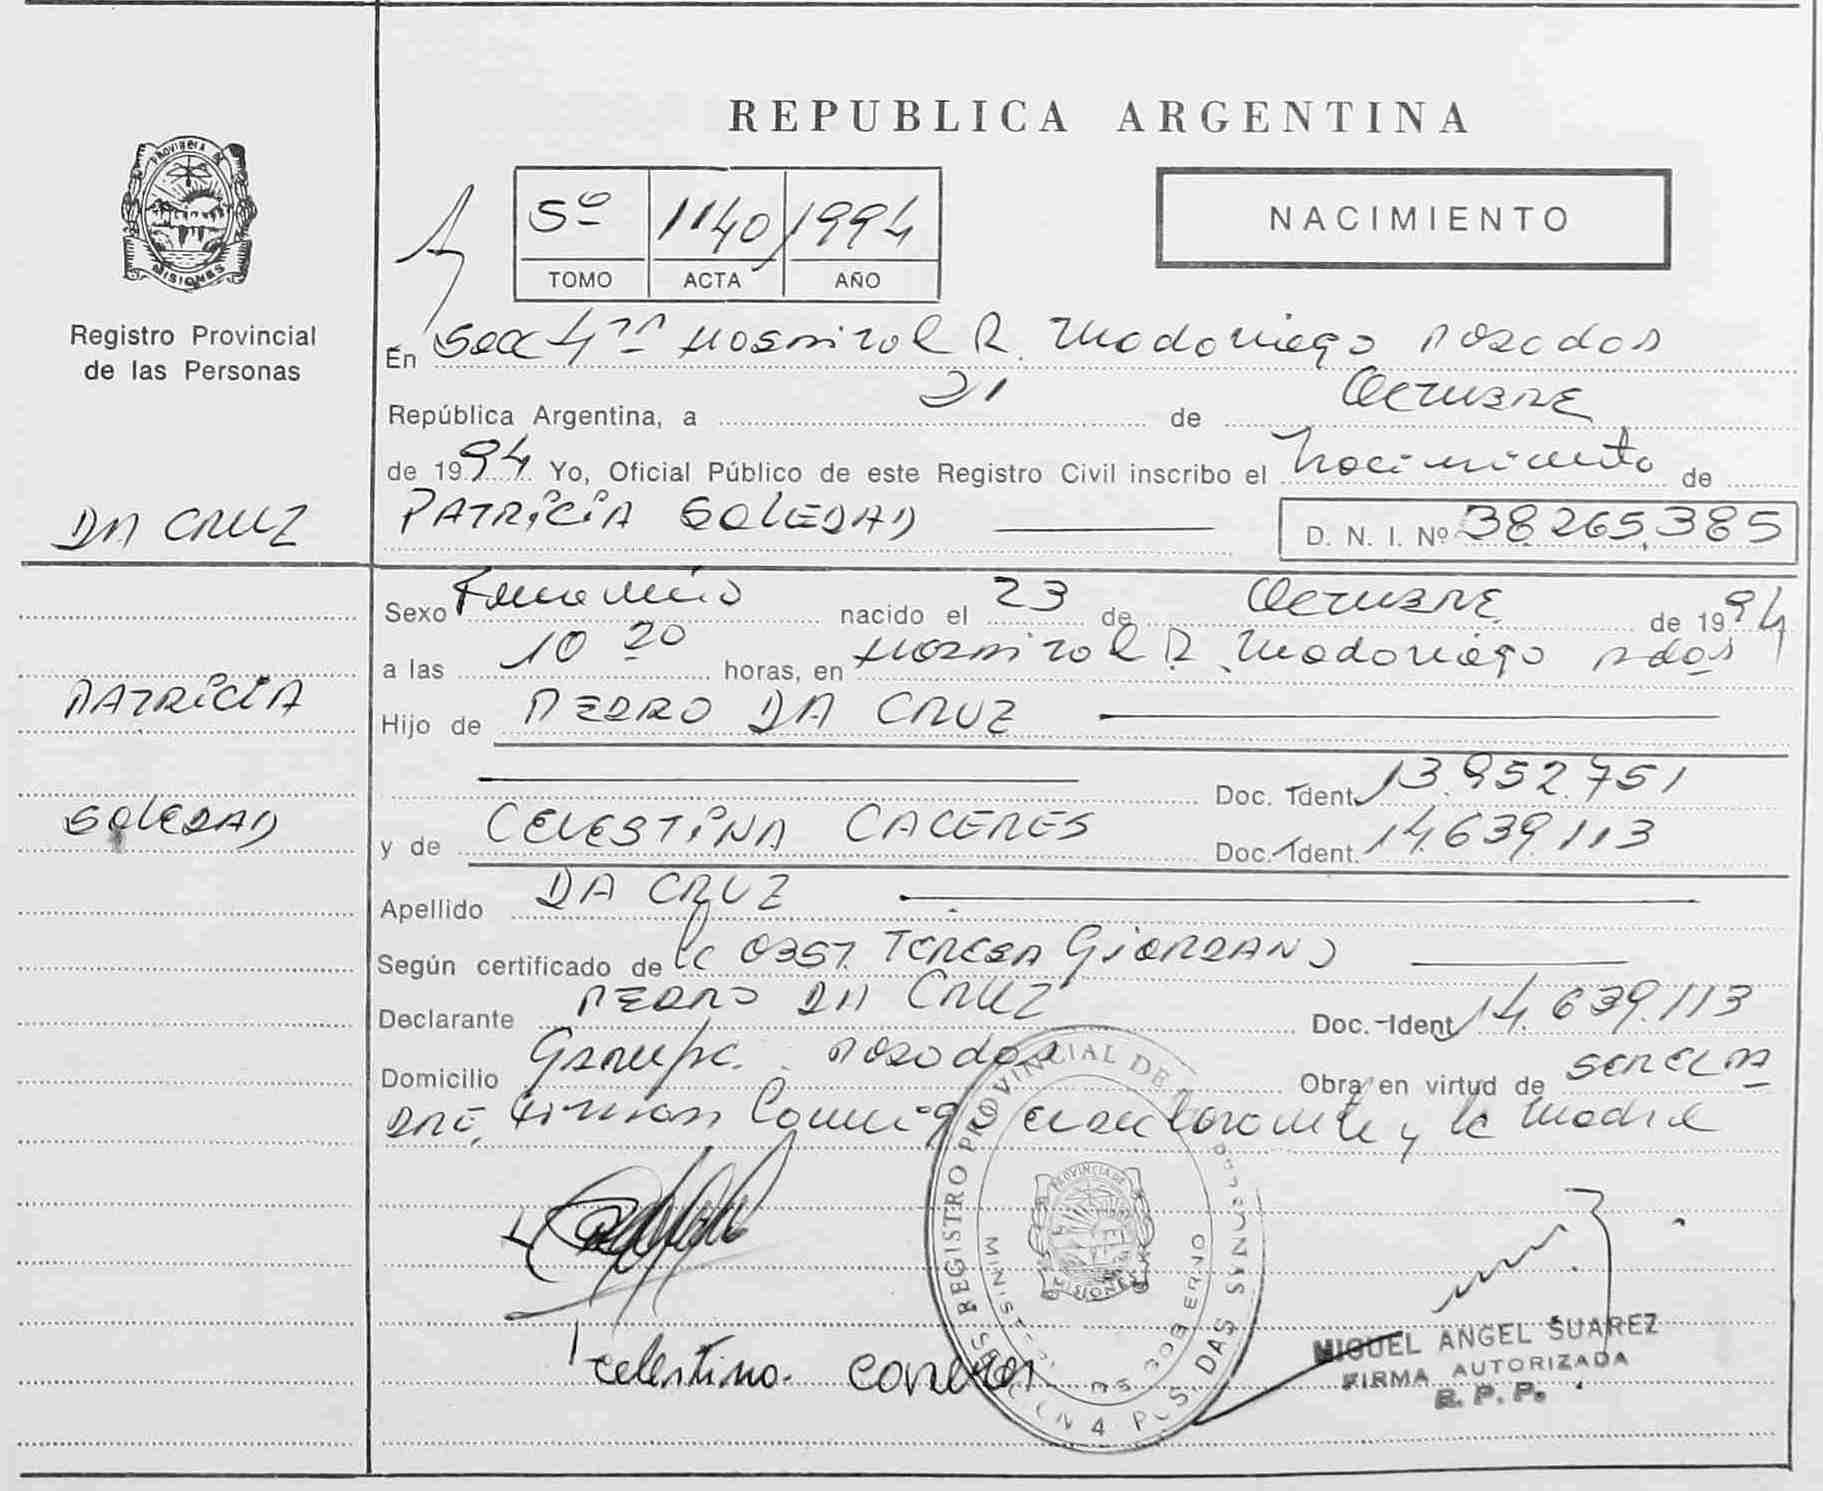 REPUBLICA ARGENTINA
PROVINCIA DE
MISIONES
Registro Provincial
de las Personas
5º 1140 1994
TOMO ACTA AÑO
NACIMIENTO
En Secc 4ta Hospital R. Madariaga Posadas
República Argentina, a 31 de Octubre
de 1994 Yo, Oficial Público de este Registro Civil inscribo el Nacimiento de
DA CRUZ
PATRICIA SOLEDAD D. N. I. Nº 38.265.385
Sexo Femenino nacido el 23 de Octubre de 1994
a las 10 20 horas, en Hospital R. Madariaga Pdas
PATRICIA
Hijo de PEDRO DA CRUZ
Doc. Ident. 13.952.751
SOLEDAD
y de CELESTINA CACERES Doc. Ident. 14.639.113
Apellido DA CRUZ
Según certificado de la OBST. TERESA GIORDANO
Declarante PEDRO DA CRUZ Doc. Ident. 14.639.113
Domicilio Garupa. Posadas Obra en virtud de SER EL PA
DRE, Firman Conmigo el declarante y la Madre
REGISTRO PROVINCIAL DE LAS PERSONAS
MINISTERIO DE GOBIERNO
PROVINCIA DE
MISIONES
SECCION 4 POSADAS
Celestina Caceres
MIGUEL ANGEL SUAREZ
FIRMA AUTORIZADA
R. P. P.